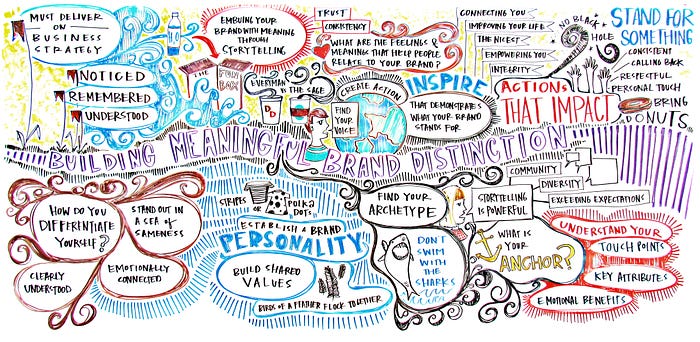 MUST DELIVER
ON
BUSINESS
STRATEGY
NOTICED
REMEMBERED
UNDERSTOOD
EMBUING YOUR
BRAND WITH MEANING
THROUGH
STORYTELLING
THE
FUN
BOX
EVERYMAN
VS THE SAGE
TRUST
CONSISTENCY
WHAT ARE THE FEELINGS &
MEANING THAT HELP PEOPLE
RELATE TO YOUR BRAND?
FIND
YOUR
VOICE
CREATE ACTION
INSPIRE
THAT DEMONSTRATES
WHAT YOUR BRAND
STANDS FOR
CONNECTING YOU
IMPROVING YOUR LIFE
THE NICEST
EMPOWERING YOU
INTEGRITY
NO BLACK
HOLE
STAND FOR
SOMETHING
CONSISTENT
CALLING BACK
RESPECTFUL
PERSONAL TOUCH
BRING
DONUTS
ACTIONS
THAT IMPACT
BUILDING MEANINGFUL BRAND DISTINCTION
HOW DO YOU
DIFFERENTIATE
YOURSELF?
STAND OUT IN
A SEA OF
SAMENESS
CLEARLY
UNDERSTOOD
EMOTIONALLY
CONNECTED
STRIPES
OR
POLKA
DOTS
ESTABLISH A BRAND
PERSONALITY
BUILD SHARED
VALUES
BIRDS OF A FEATHER FLOCK TOGETHER
FIND YOUR
ARCHETYPE
DON'T
SWIM
WITH
THE
SHARKS
STORYTELLING
IS POWERFUL
COMMUNITY
DIVERSITY
EXCEEDING EXPECTATIONS
WHAT IS
YOUR
ANCHOR?
UNDERSTAND YOUR
TOUCH POINTS
KEY ATTRIBUTES
EMOTIONAL BENEFITS